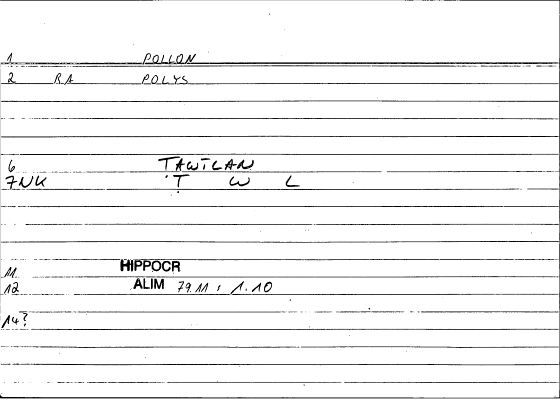 1 POLLON
2 RA POLYS
6 TAWĪLAN
7NK Ṭ W L
11 HIPPOCR
12 ALIM 79.11 , 1.10
14?